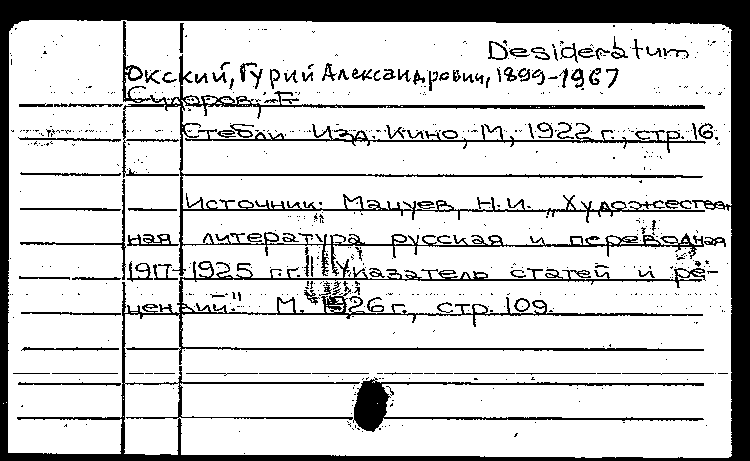 Desideratum
Окский, Гурий Александрович, 1899-1967
Сидоров, Г.
Стебли Изд. Кино, М, 1922 г., стр. 16.
Источник: Мацуев, Н.И. „Художествен
ная литература русская и переводная
1917-1925 г.г. Указатель статей и ре-
цензий." М. 1926 г., стр. 109.